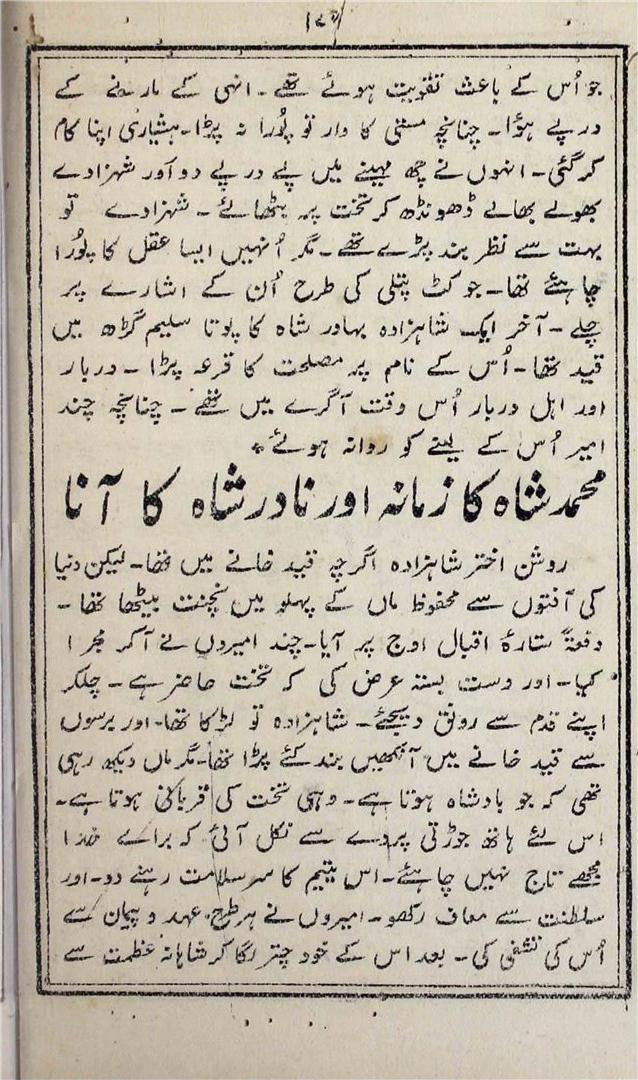 جو اُس کے باعث تقویت ہوئے تھے۔ انہی کے مارنے کے
درپے ہؤا۔ چنانچہ مستی کا وار تو پُورا نہ پڑا۔ ہشیاری اپنا کام
کرگئی۔ انہوں نے چھ مہینے میں پے درپے دو اور شہزادے
بھولے بھالے ڈھونڈھ کر تخت پر بٹھائے۔ شہزادے تو
بہت سے نظر بند پڑے تھے۔ مگر اُنہیں ایسا عقل کا پُورا
چاہئے تھا۔ جو کٹ پتلی کی طرح اُن کے اشارے پر
چلے۔ آخر ایک شاہزادہ بہادر شاہ کا پوتا سلیم گڑھ میں
قید تھا۔ اُس کے نام پر مصلحت کا قرعہ پڑا۔ دربار
اور اہل دربار اُس وقت آگرے میں تھے۔ چنانچہ چند
امیر اُس کے لینے کو روانہ ہوئے*
محمد شاہ کا زمانہ اور نادر شاہ کا آنا
روشن اختر شاہزادہ اگرچہ قید خانے میں تھا۔ لیکن دنیا
کی آفتوں سے محفوظ ماں کے پہلو میں نچنت بیٹھا تھا۔
دفعۃً ستارۂ اقبال اوج پر آیا۔ چند امیروں نے آکر مجرا
کیا۔ اور دست بستہ عرض کی کہ تخت حاضر ہے۔ چلکر
اپنے قدم سے رونق دیجئے۔ شاہزادہ تو لڑکا تھا۔ اور برسوں
سے قید خانے میں آنکھیں بند کئے پڑا تھا۔ مگر ماں دیکھ رہی
تھی کہ جو بادشاہ ہوتا ہے۔ وہی تخت کی قربانی ہوتا ہے۔
اس لئے ہاتھ جوڑتی پردے سے نکل آئی کہ براے خدا
مجھے تاج نہیں چاہئے۔ اس یتیم کا سر سلامت رہنے دو۔ اور
سلطنت سے معاف رکھو۔ امیروں نے ہر طرح عہد و پیمان سے
اُس کی تشفی کی۔ بعد اس کے خود چتر لگا کر شاہانہ عظمت سے